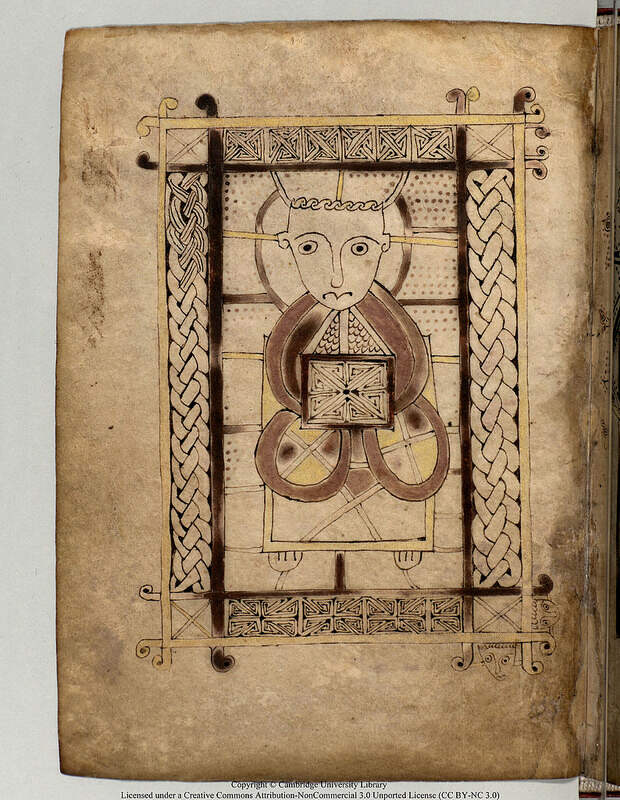 Copyright © Cambridge University Library
Licensed under a Creative Commons Attribution-NonCommercial 3.0 Unported License (CC BY-NC 3.0)